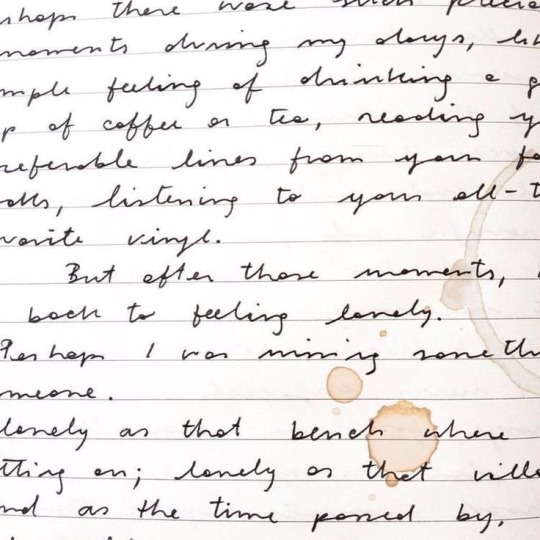 perhaps there were such
moments during my days,
simple feeling of drinking a
of coffee or tea, reading
preferable lines from your
listening to your all-
favorite vinyl.
But after those moments,
back to feeling lonely.
Perhaps I was missing
someone.
lonely as that bench where
on; lonely as that
and as the time passed by,